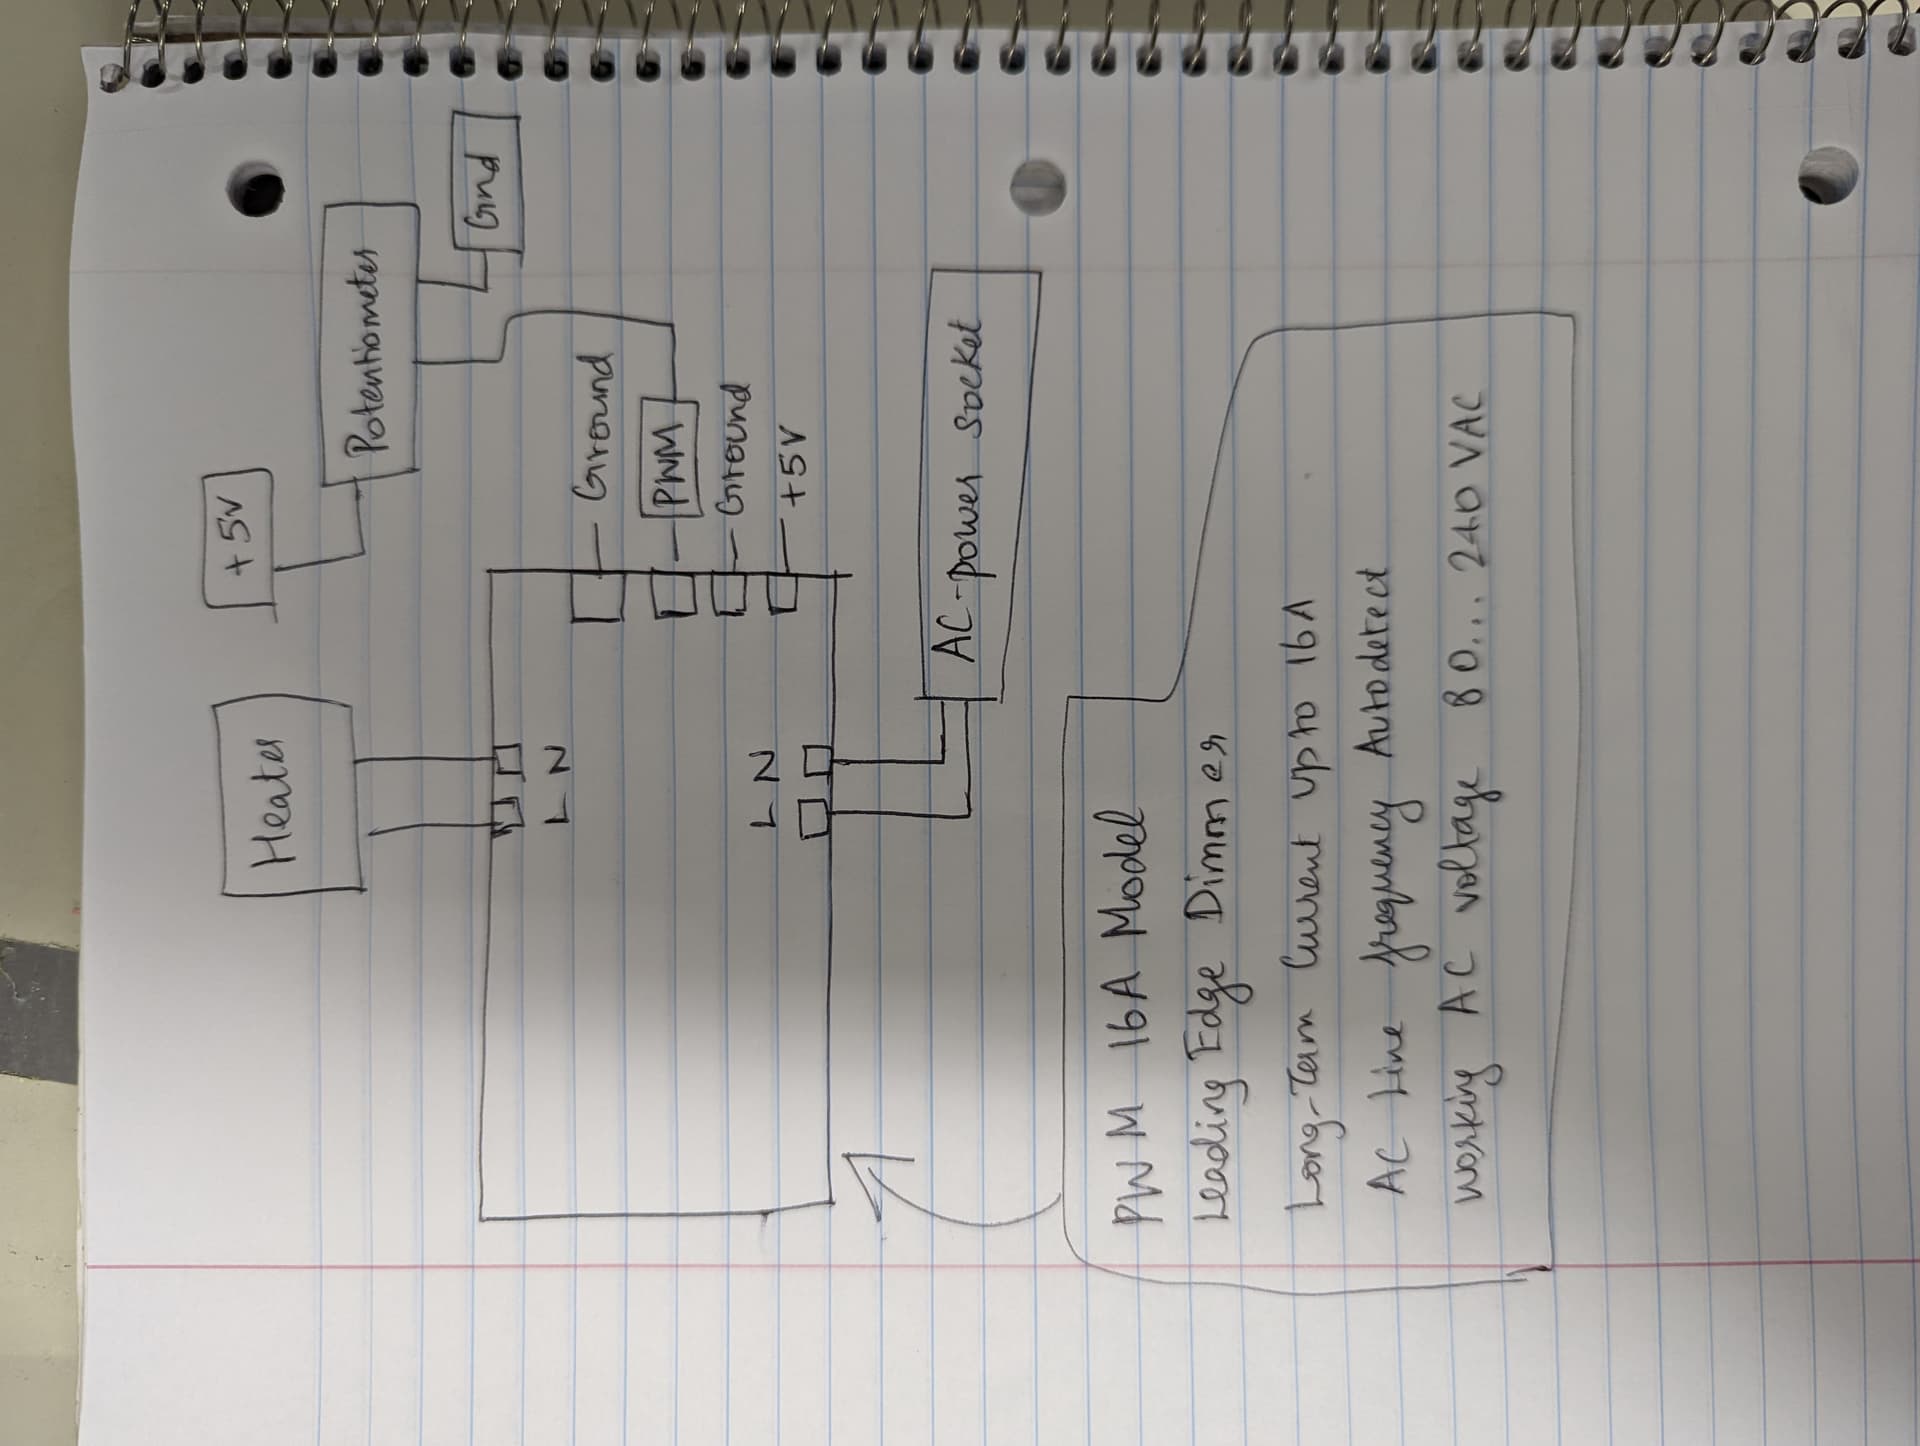 Heater
+5V
Potentiometer
Gnd
L
N
Ground
PWM
Ground
+5V
L
N
AC-power socket
PWM 16A Model
Leading Edge Dimmer
Long-Term Current upto 16A
AC Line frequency Autodetect
Working AC voltage 80... 240 VAC